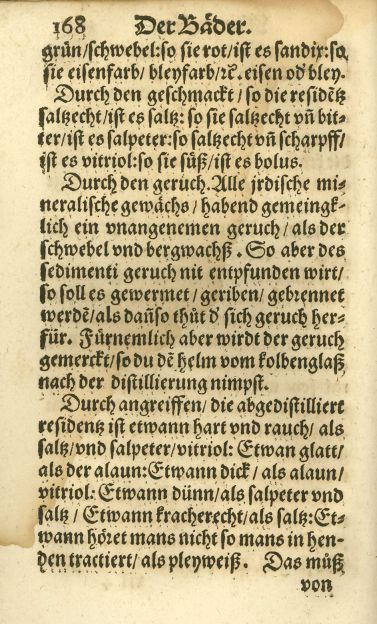 168 Der Bäder.
grün/schwebel:so sie rot/ist es sandix:so
sie eisenfarb/bleyfarb/ꝛc̄. eisen od' bley.
Durch den geschmackt/so die residētz
saltzecht/ist es saltz: so sie saltzecht vn̄ bit-
ter/ist es salpeter:so saltzecht vn̄ scharpff/
ist es vitriol:so sie süß/ist es bolus.
Durch den geruch. Alle jrdische mi-
neralische gewächs/habend gemeingk-
lich ein vnangenemen geruch/als der
schwebel vnd bergwachß. So aber des
sedimenti geruch nit entpfunden wirt/
so soll es gewermet/geriben/gebrennet
werdē/als dan̄so thůt d' sich geruch her-
für. Fürnemlich aber wirdt der geruch
gemerckt/so du dē helm vom kolbenglaß
nach der distillierung nimpst.
Durch angreiffen/die abgedistilliert
residentz ist etwann hart vnd rauch/als
saltz/vnd salpeter/vitriol: Etwan glatt/
als der alaun:Etwann dick/als alaun/
vitriol: Etwann dünn/als salpeter vnd
saltz/Etwann kracherecht/als saltz:Et-
wann höret mans nicht so mans in hen-
den tractiert/als pleyweiß. Das můß
von